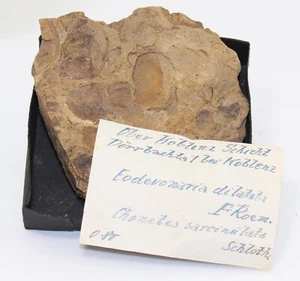 Ober Koblenz Schicht
Dörrbachtal bei Koblenz
Eodevonaria dilatata
F. Roem.
Chonetes sarcinulata
Schloth.